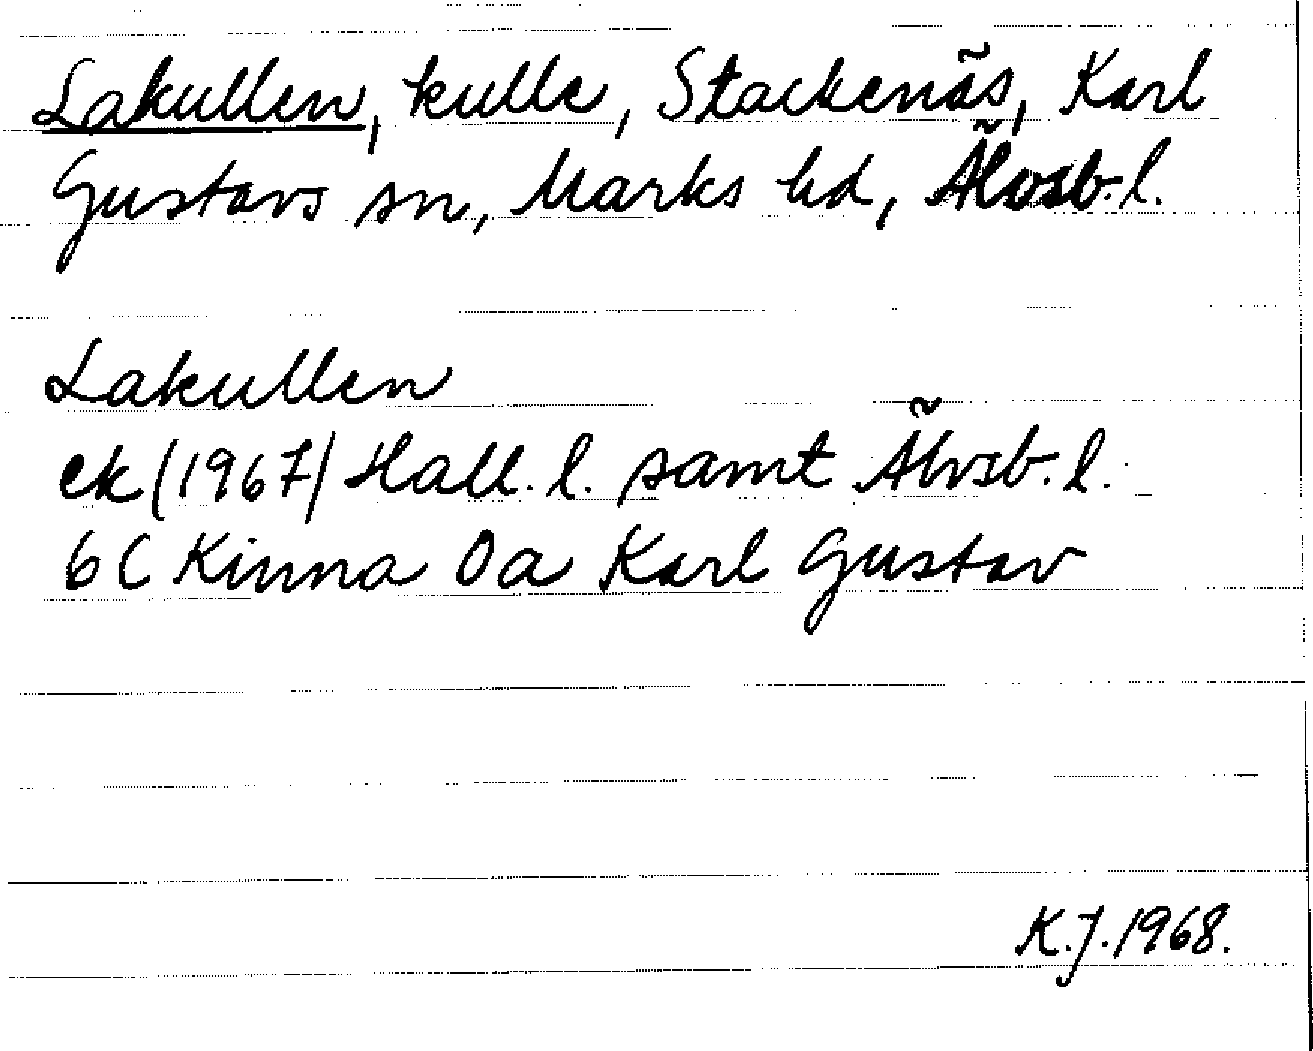 Lakullen, kulle, Stackenäs, Karl
Gustavs sn, Marks hd, Älvsb. l.
Lakullen
ek (1967) Hall. l. samt Älvsb. l.
6C Kinna 0a Karl Gustav
K.J. 1968.